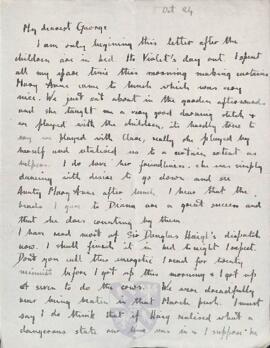 Oct 24
My dearest George
I am only beginning this letter after the
children are in bed. It's Violet's day out. I spent
all my spare time this morning making curtains
Mary Anne came to lunch which was very
nice. We just sat about in the garden afterwards
and she taught me a very good darning stitch &
we played with the children, it hardly seems to
say we played with Clare, really she played by
herself and attached us to a certain extent as
helpers. I do love her friendliness. She was simply
dancing with desire to go down and see
Aunty Mary Anne after lunch. I hear that the
beads I gave to Diana are a great success and
that she does counting by them.
I have read most of Sir Douglas Haig's dispatch
now. I shall finish it in bed tonight I expect.
Don't you call this energetic I read for twenty
minutes before I got up this morning & I got up
at seven to do the cows. We were dreadfully
near being beaten in that March push. I must
say I do think that if Haig realised what a
dangerous state our line was in & I suppose he